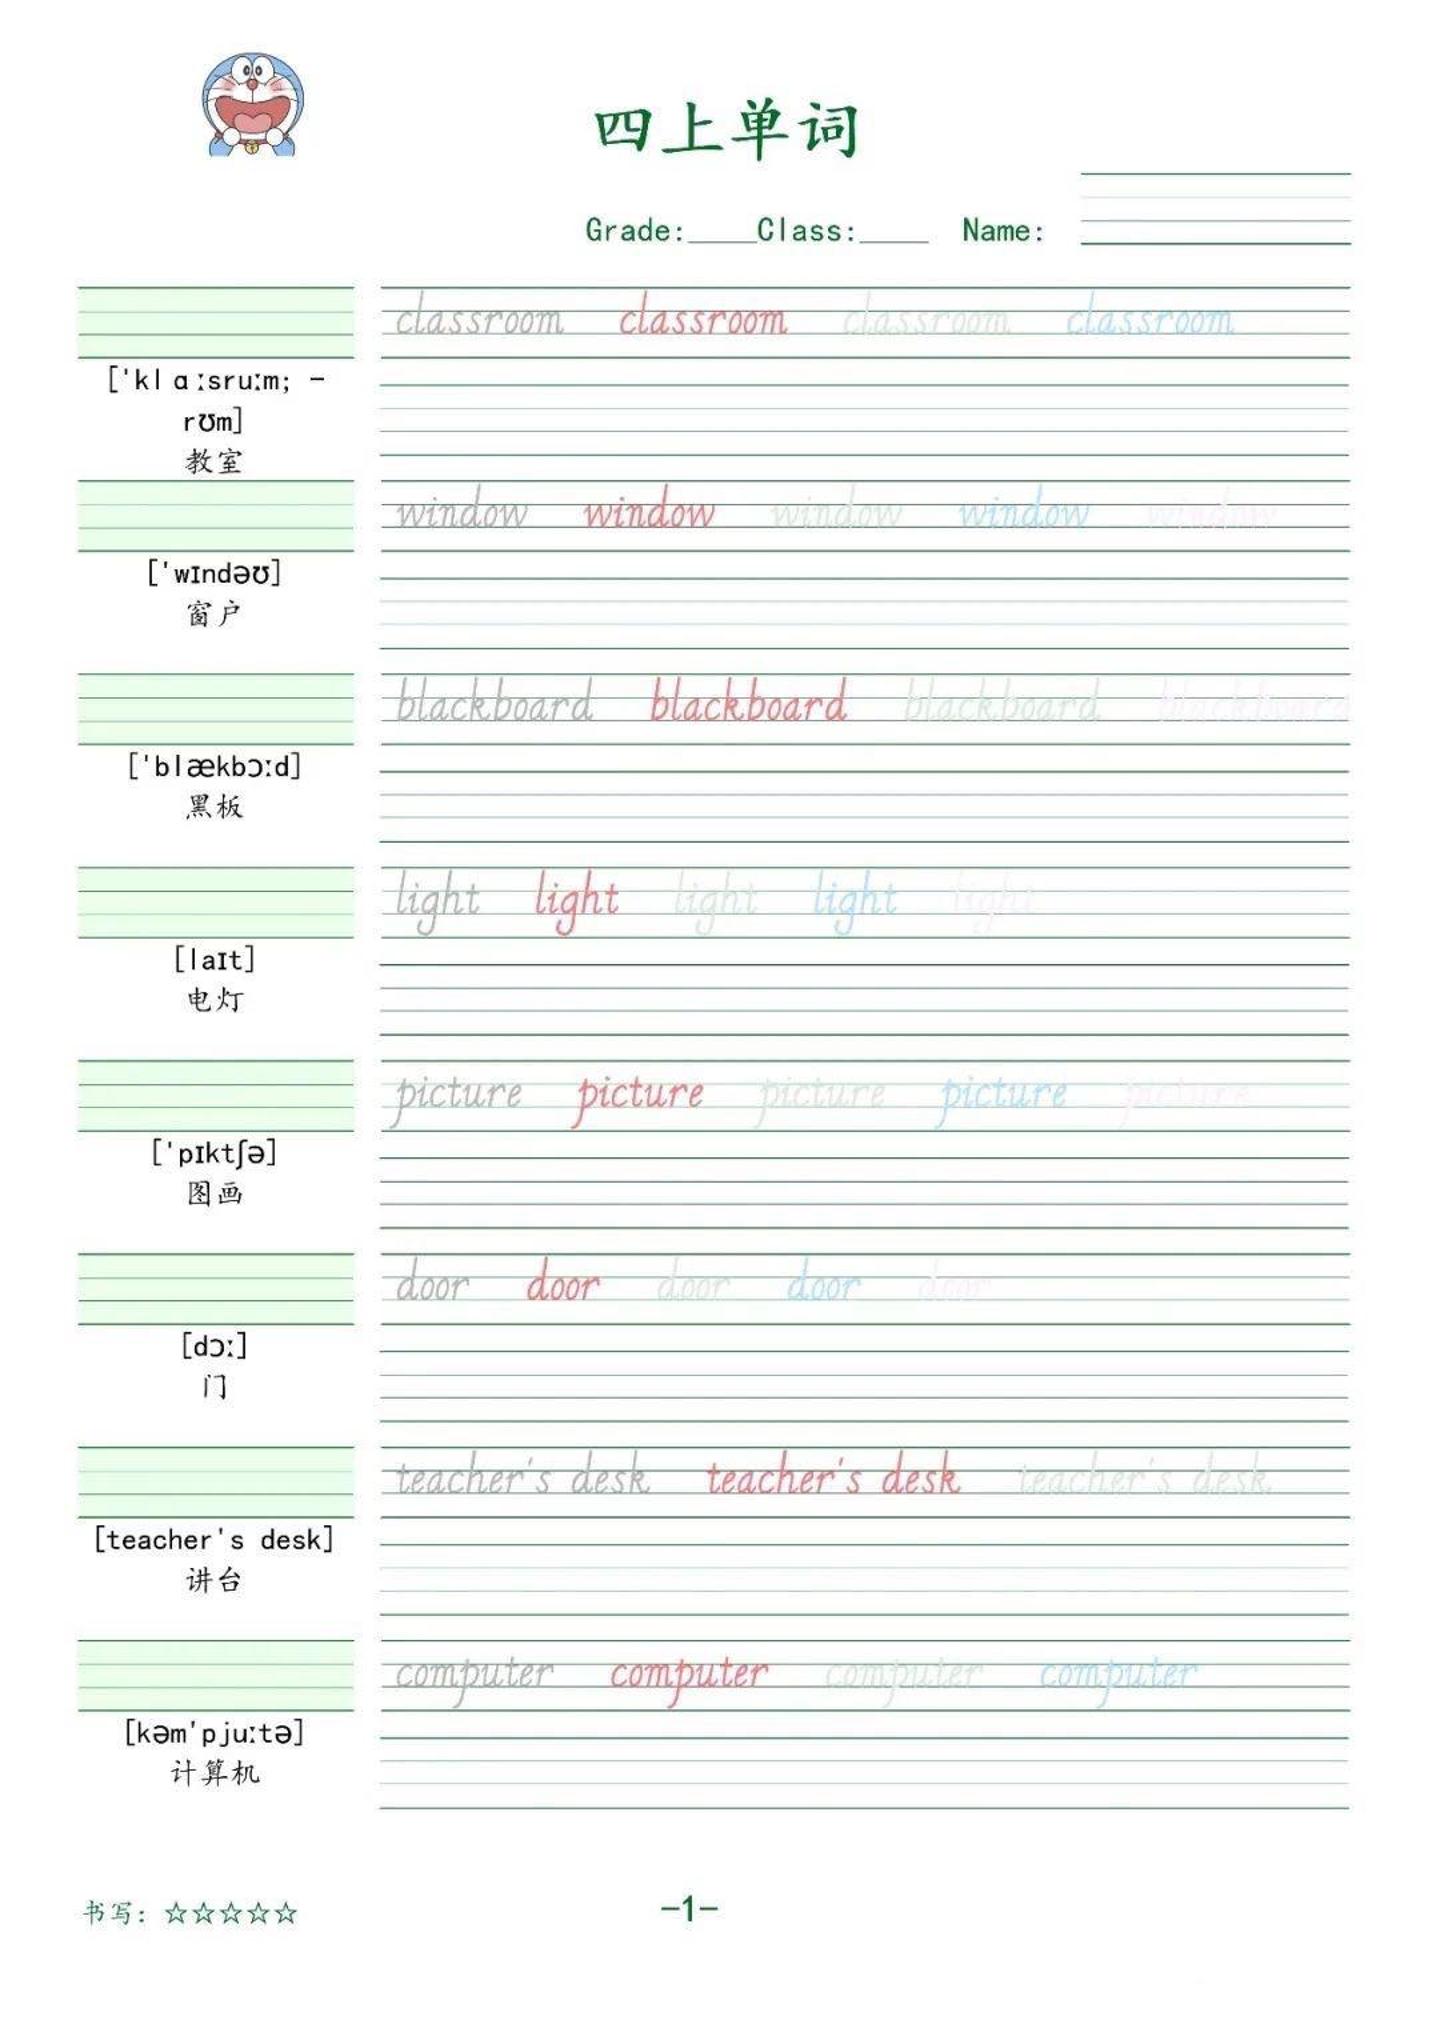 四上单词
Grade:____Class:____ Name:
classroom classroom classroom classroom
[ˈklɑːsruːm; -
rʊm]
教室
window window window window window
[ˈwɪndəʊ]
窗户
blackboard blackboard blackboard blackboard
[ˈblækbɔːd]
黑板
light light light light light
[laɪt]
电灯
picture picture picture picture picture
[ˈpɪktʃə]
图画
door door door door door
[dɔː]
门
teacher's desk teacher's desk teacher's desk
[teacher's desk]
讲台
computer computer computer computer
[kəm'pjuːtə]
计算机
书写：☆☆☆☆☆
-1-